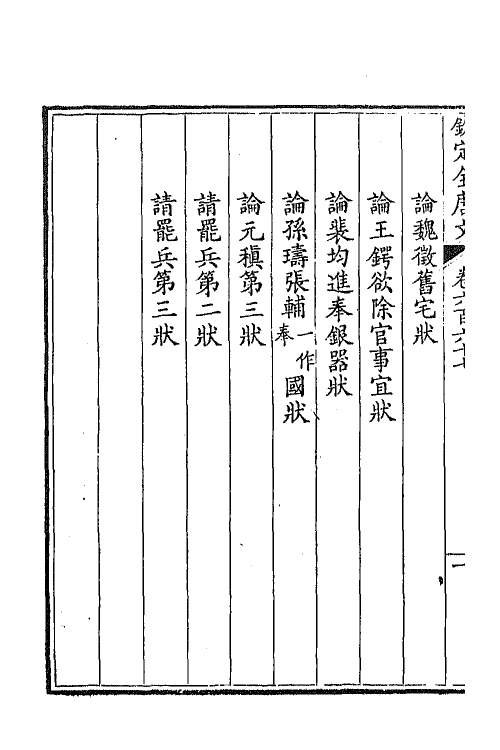 欽定全唐文 卷六百六十七 一
論魏徵舊宅狀
論王鍔欲除官事宜狀
論裴均進奉銀器狀
論孫璹張輔一作奉國狀
論元稹第三狀
請罷兵第二狀
請罷兵第三狀